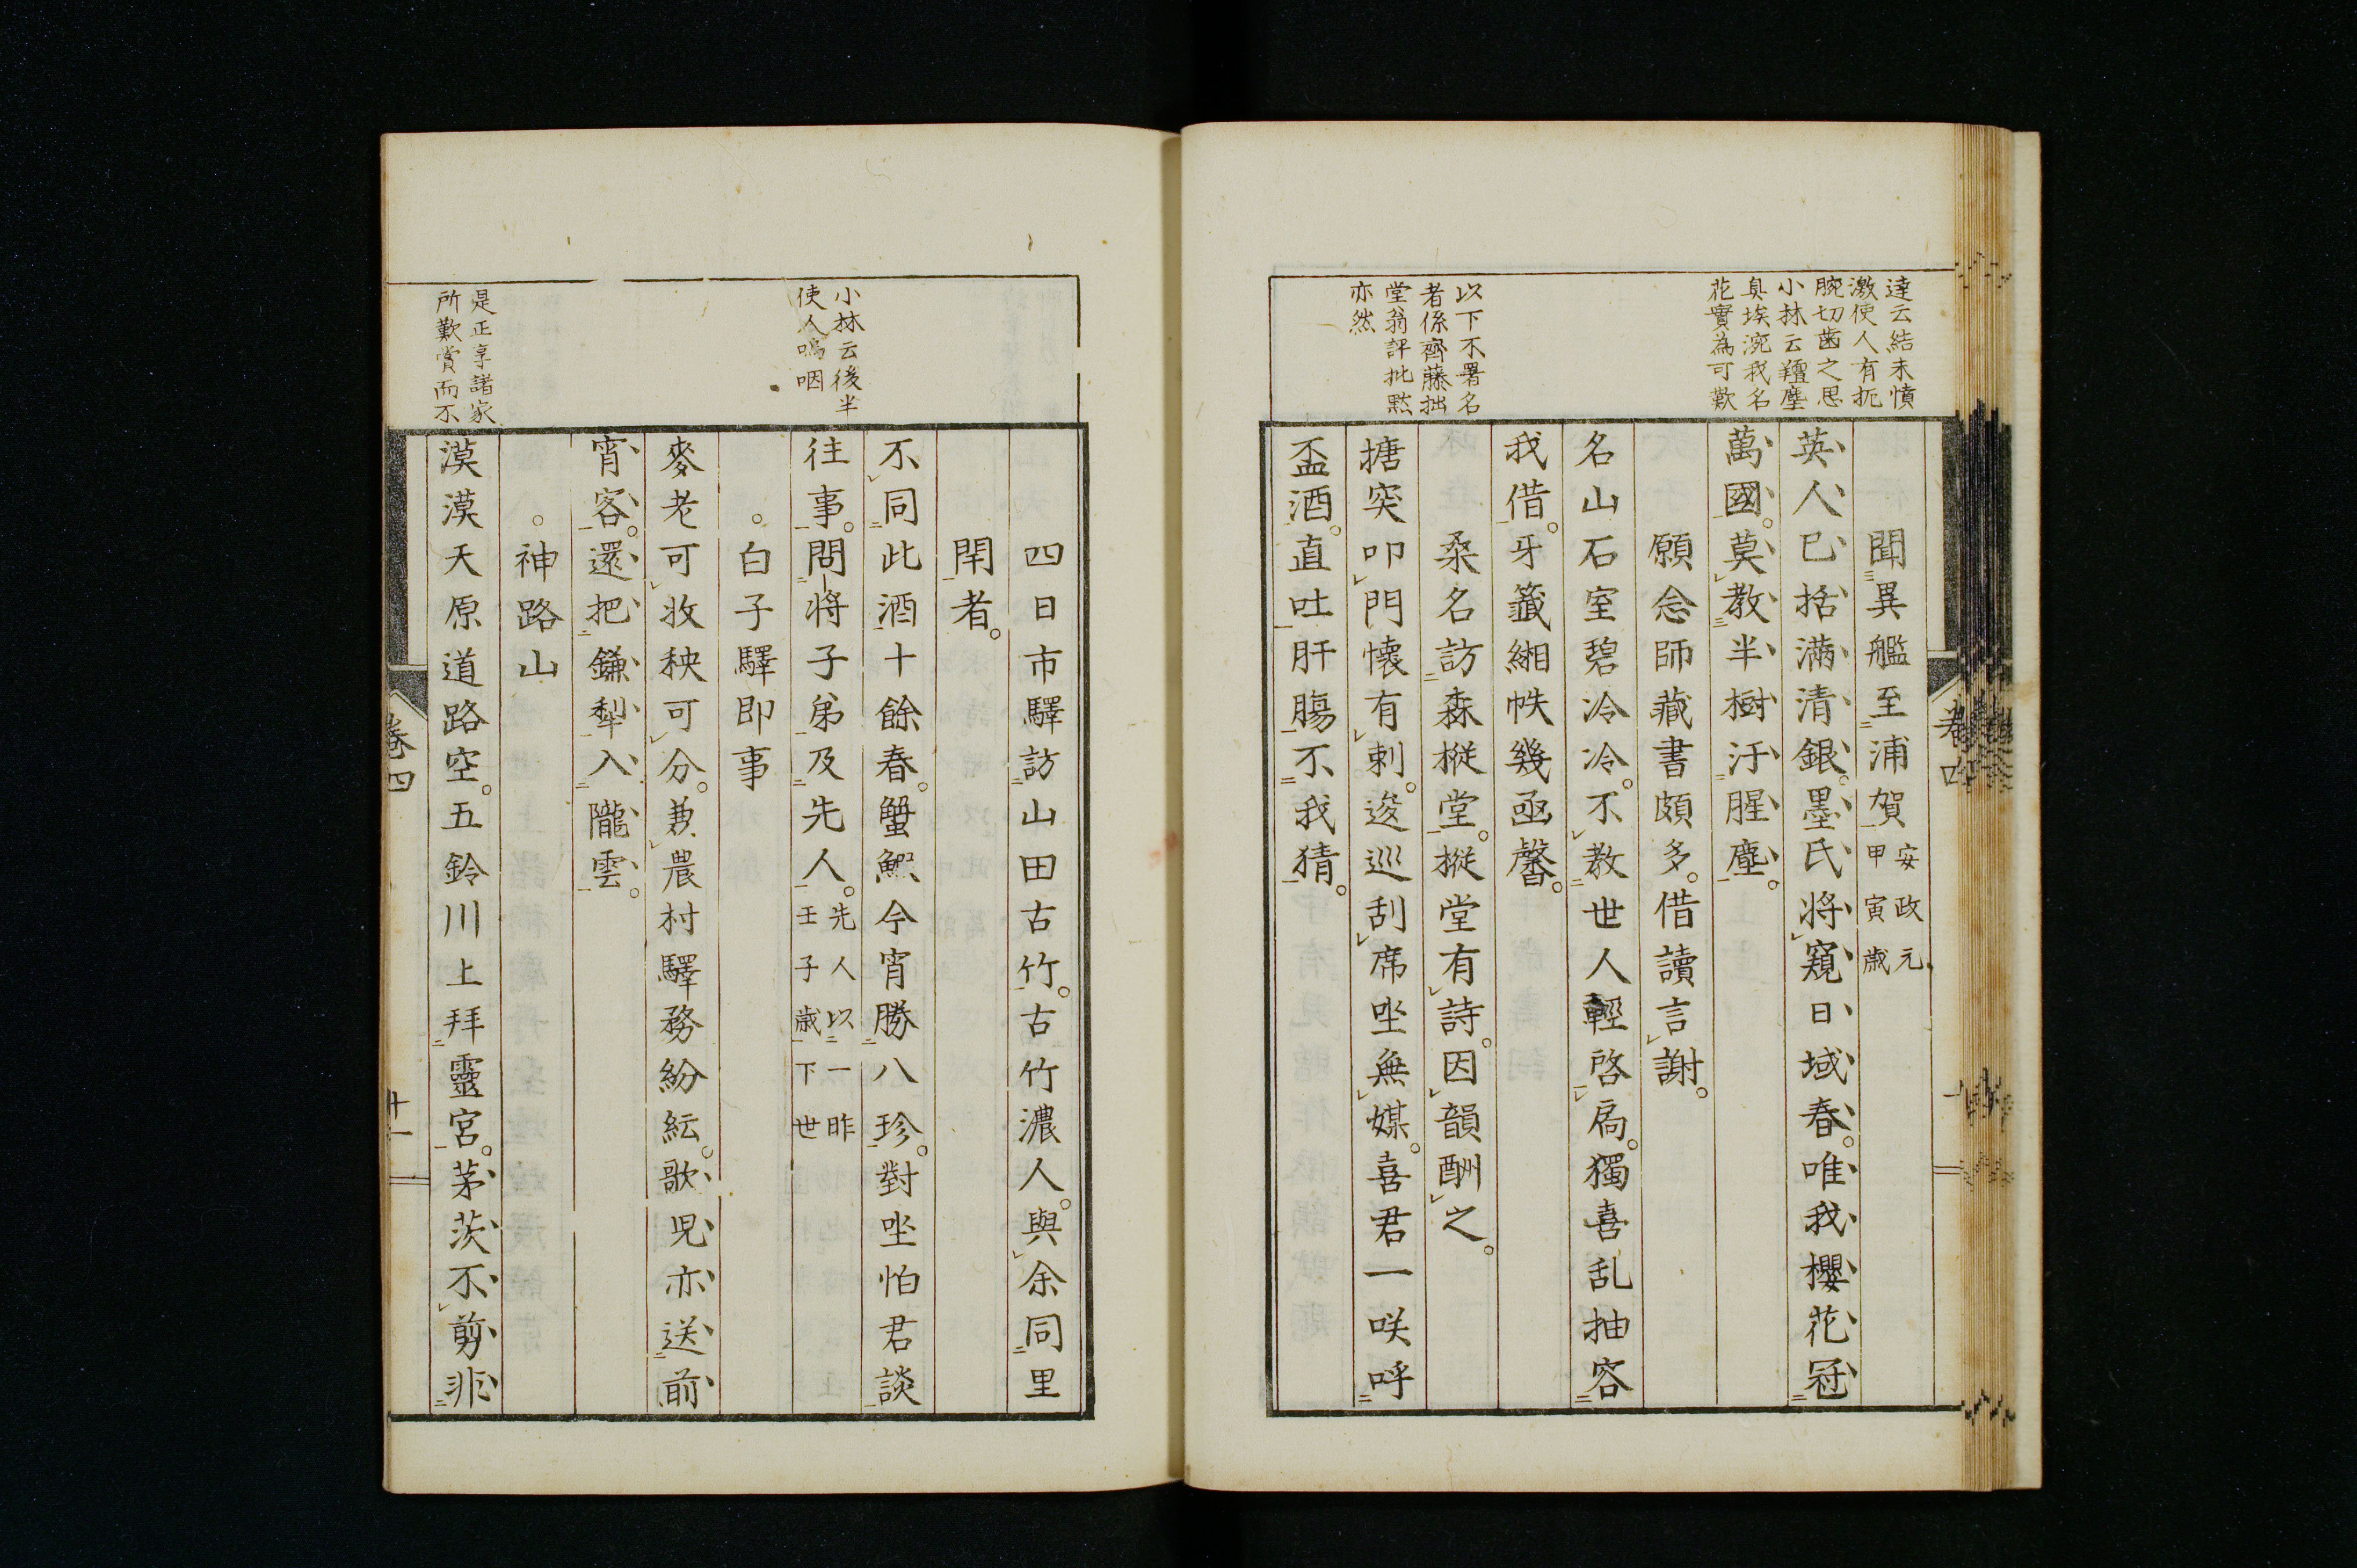 達云結末憤
激使人有扼
腕切齒之思
小林云羶塵
臭埃涴我名
花實為可歎
以下不署名
者係齊藤拙
堂翁評批㸃
亦然
聞異艦至浦賀安政元甲寅歳
英人已括滿清銀墨氏將窺日域春唯我櫻花冠
萬國莫教半樹汙腥塵
願念師藏書頗多借讀言謝
名山石室碧冷冷不教世人輕啓扃獨喜乱抽容
我借牙籤緗帙幾函馨
桑名訪森樅堂樅堂有詩因韻酬之
搪突叩門懷有刺逡巡刮席坐無媒喜君一咲呼
盃酒直吐肝腸不我猜
卷四
小林云後半
使人嗚咽
是正享諸家
所歎賞而不
四日市驛訪山田古竹古竹濃人與余同里
閈者
不同此酒十餘春蟹鰕今宵勝八珍對坐怕君談
往事問將子弟及先人先人以一昨壬子歳下世
白子驛即事
麥老可收秧可分兼農村驛務紛紜歌児亦送前
宵客還把鎌犁入隴雲
神路山
漠漠天原道路空五鈴川上拜靈宮茅茨不剪非
卷四
十一